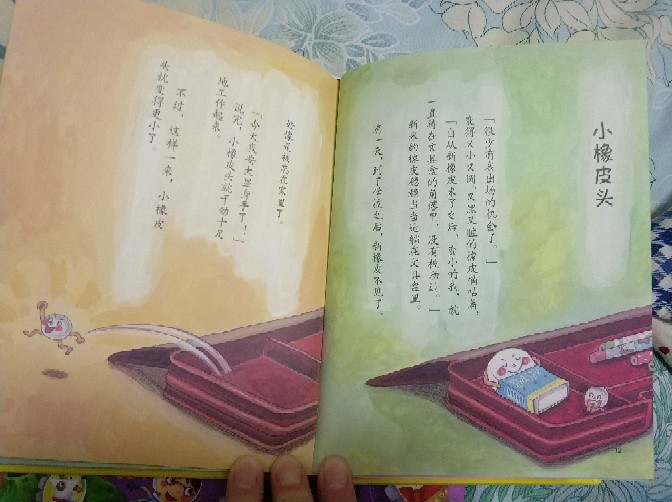 小橡皮头
「很少有我出场的机会了。」
变得又小又圆，又黑又脏的橡皮嘀咕着，
「自从新橡皮来了之后，变小的我，就
一直待在文具盒的角落里，没有被动过。」
新来的橡皮稳稳当当地躺在文具盒里。
有一天，到了学校之后，新橡皮不见了。
好像是被忘在家里了。
「今天我要大显身手了！」
说完，小橡皮头就干劲十足
地工作起来。
不过，这样一来，小橡皮
头就变得更小了。